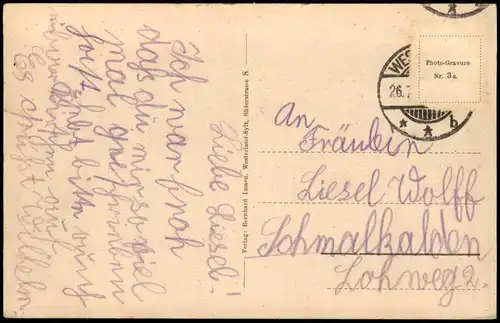 Liebe Liesel!
Ich war froh
daß du mir so viel
mal geschrieben
hast. bitte
auf
Es grüßt Wilhelm
Verlag: Bernhard Lassen, Westerland-Sylt, Süderstrasse 8.
Photo-Gravure
Nr. 3a.
WES
26.7
* * b
An
Fräulein
Liesel Wolff
Schmalkalden
Lohweg 2.